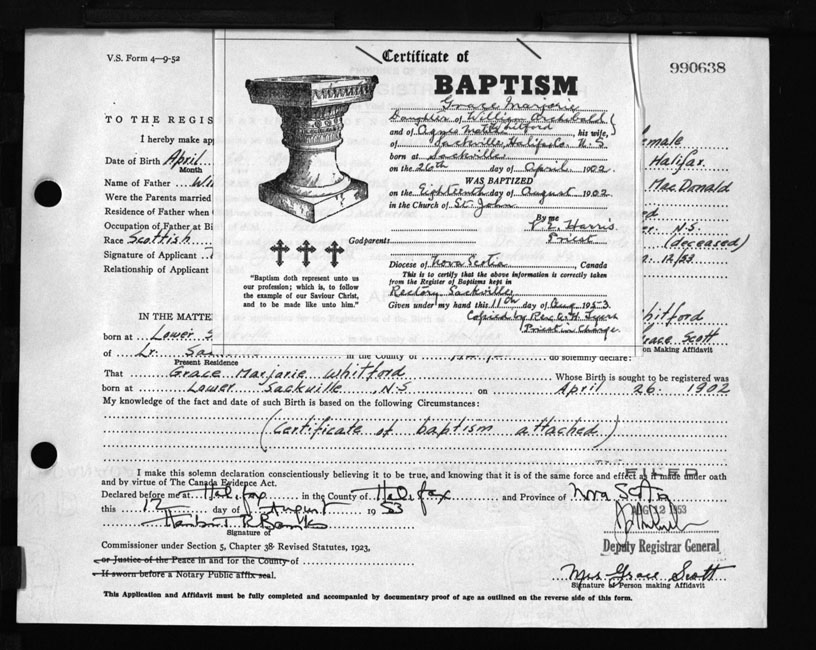 V.S. Form 4—9-52
990638
Certificate of
BAPTISM
Grace Marjorie
Daughter of William Archibald
and of Agnes Whitford, his wife,
of Sackville, Halifax Co. N.S.
born at Sackville
on the 26th day of April 1902
WAS BAPTIZED
on the Eighteenth day of August 1902
in the Church of St. John
By me
V. E. Harris
Priest
Godparents
Diocese of Nova Scotia, Canada
This is to certify that the above information is correctly taken
from the Register of Baptisms kept in
Rectory, Sackville
Given under my hand this 11th day of Aug. 1953
Copied by Rev. A. H.
Priest in Charge.
"Baptism doth represent unto us
our profession; which is, to follow
the example of our Saviour Christ,
and to be made like unto him."
TO THE REGIS
I hereby make ap
Date of Birth April
Month
Name of Father
Were the Parents married
Residence of Father when
Occupation of Father at Bi
Race Scottish
Signature of Applicant
Relationship of Applicant
emale
Halifax
MacDonald
N.S.
(deceased)
12/53
IN THE MATTE
hitford
born at Lower S
Grace Scott
on Making Affidavit
of Lr. Sa in the County of do solemnly declare:
Present Residence
That Grace Marjorie Whitford Whose Birth is sought to be registered was
born at Lower Sackville, N.S on April 26. 1902
My knowledge of the fact and date of such Birth is based on the following Circumstances:
(Certificate of baptism attached)
I make this solemn declaration conscientiously believing it to be true, and knowing that it is of the same force and effect as if made under oath
and by virtue of The Canada Evidence Act.
FILED
Declared before me at Halifax in the County of Halifax and Province of Nova Scotia
this 12 day of August 1953
AUG 12 1953
Signature of
Deputy Registrar General
Commissioner under Section 5, Chapter 38 Revised Statutes, 1923,
or Justice of the Peace in and for the County of
If sworn before a Notary Public affix seal.
Mrs Grace Scott
Signature of Person making Affidavit
This Application and Affidavit must be fully completed and accompanied by documentary proof of age as outlined on the reverse side of this form.